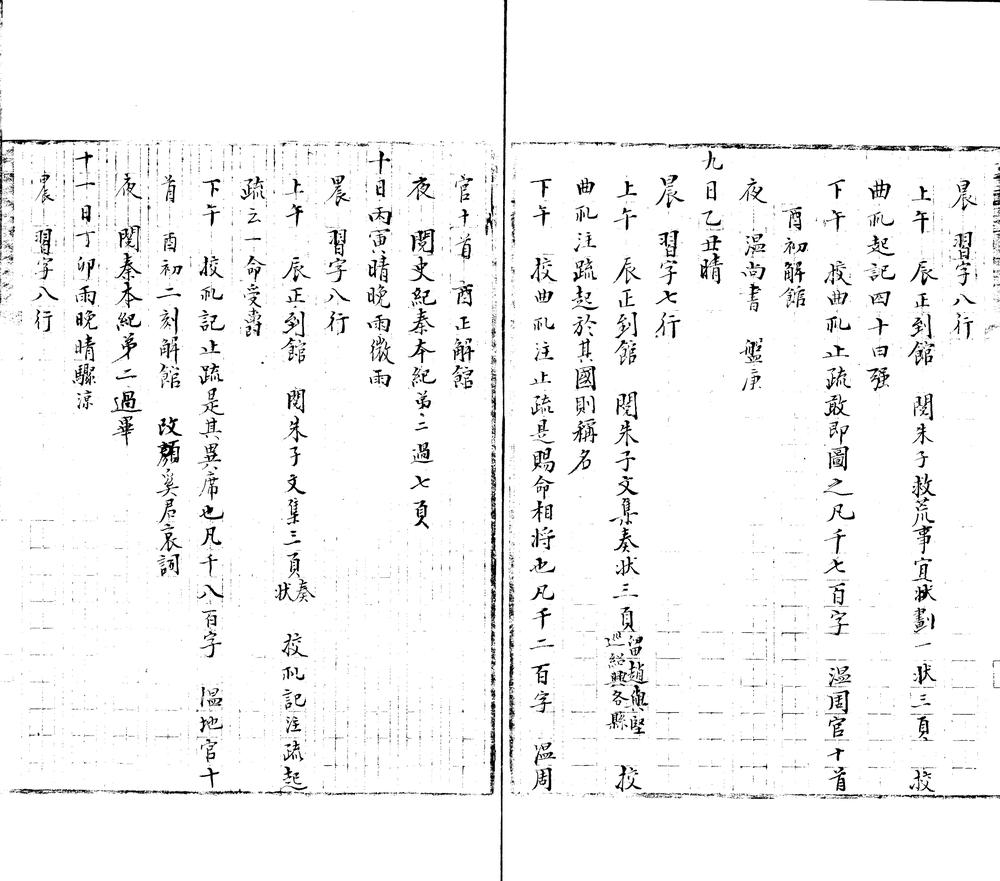 晨　習字八行
上午　辰正到館　閱朱子救荒事宜狀劃一狀三頁　校
曲礼起記四十曰强
下午　校曲礼止疏敢即圖之凡千七百字　温周官十首
酉初解館
夜　温尚書　盤庚
九日乙丑晴
晨　習字七行
上午　辰正到館　閱朱子文集奏狀三頁留趙與堅巡紹興各縣　校
曲礼注疏起於其國則稱名
下午　校曲礼注止疏是賜命相将也凡千二百字　温周
官十首　酉正解館
夜　閱史紀秦本紀第二過七頁
十日丙寅晴晚雨微雨
晨　習字八行
上午　辰正到館　閱朱子文集三頁奏狀　校礼記注疏起
疏云一命受爵
下午　校礼記止疏是其異席也凡千八百字　温地官十
首　酉初二刻解館　改顏奚君哀詞
夜　閱秦本紀第二過畢
十一日丁卯雨晚晴驟涼
晨　習字八行